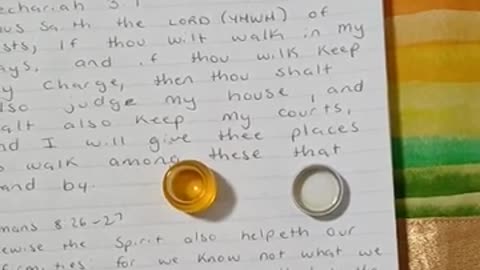 echariah 3:7
us saith the LORD (YHWH) of
sts, If thou wilt walk in my
ays, and if thou wilt keep
y charge, then thou shalt
lso judge my house, and
alt also keep my courts,
nd I will give thee places
o walk among these that
and by.
mans 8:26-27
ewise the Spirit also helpeth our
firmities: for we know not what we